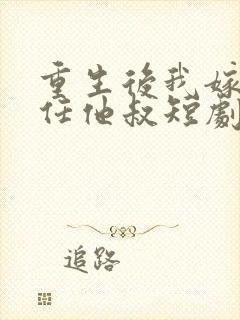 重生後我嫁
任他叔短劇
追路